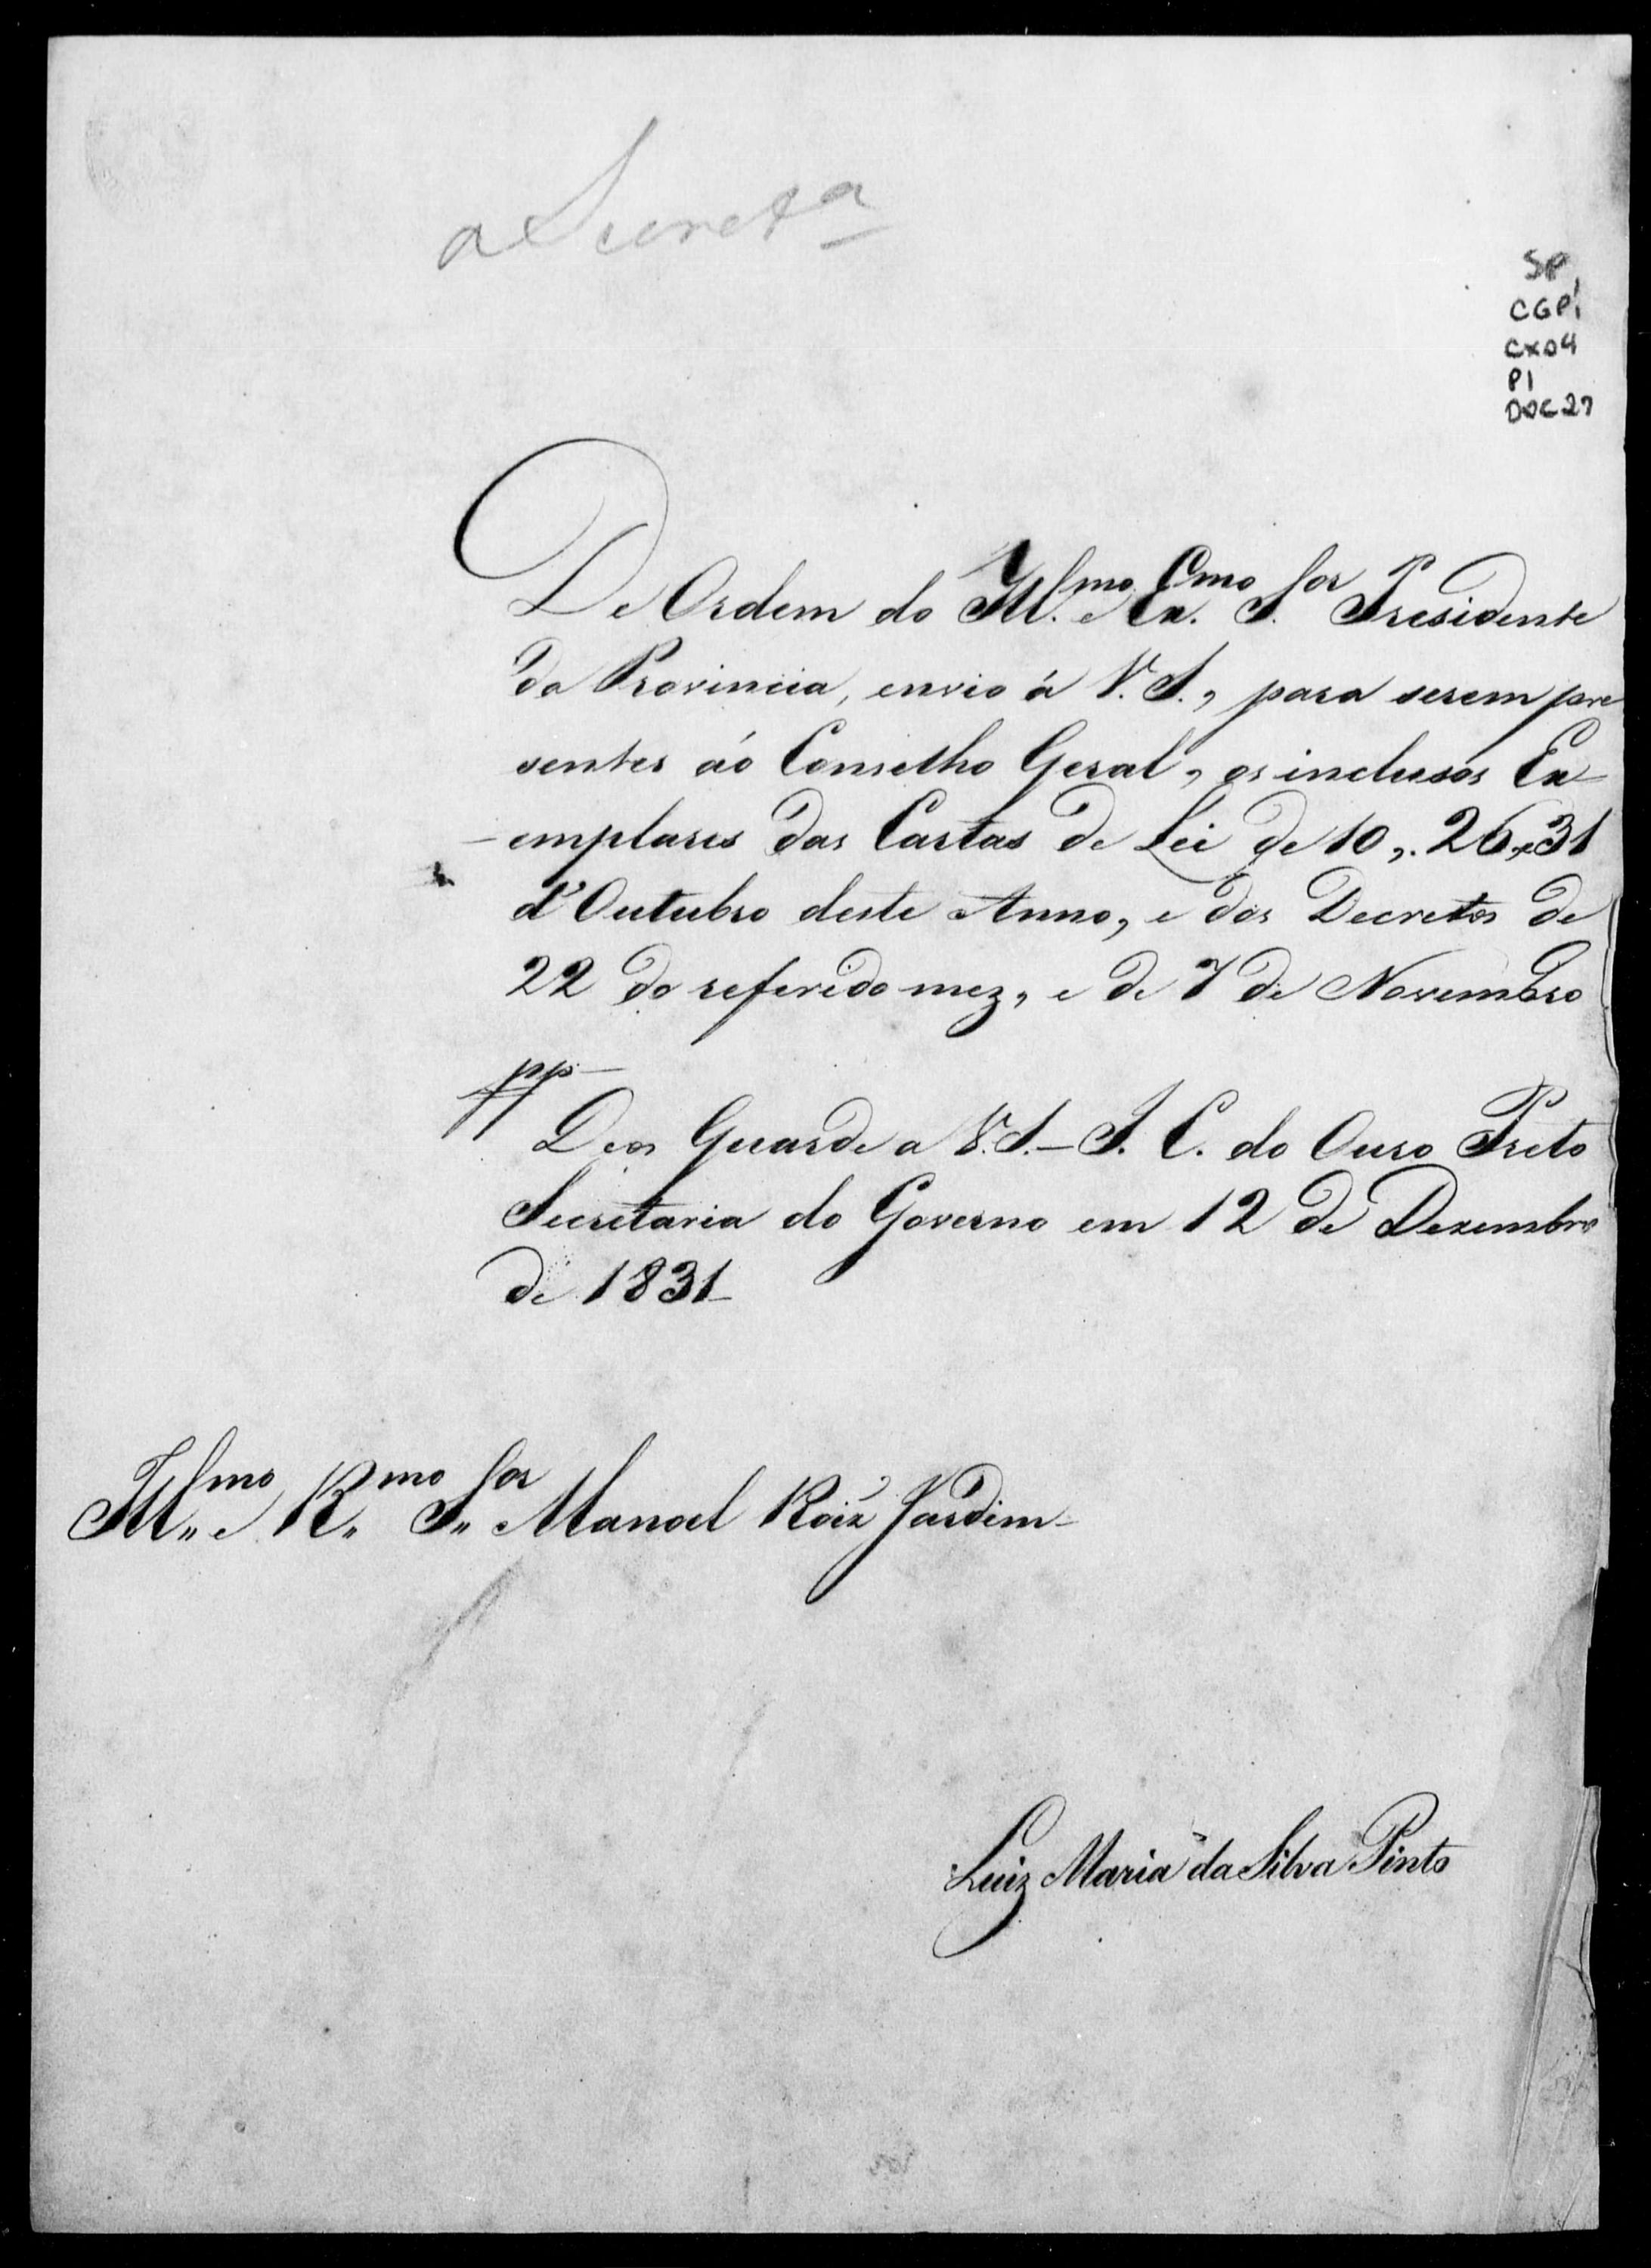 a Secret.ª
SP
CGP1
CX04
P1
DOC27
De Ordem do Ill.mo e Ex.mo S.or Presidente
da Provincia, envio á V. S., para serem pre
sentes áo Conselho Geral, os inclusos Ex-
-emplares das Cartas de Lei de 10, 26, e 31
d'Outubro deste Anno, e dos Decretos de
22 do referido mez, e de 7 de Novembro
pp-
Deos Guarde a V. S. - I. C. do Ouro Preto
Secretaria do Governo em 12 de Dezembro
de 1831-
Ill.mo e R.mo S.or Manoel Roiz Jardim-
Luiz Maria da Silva Pinto